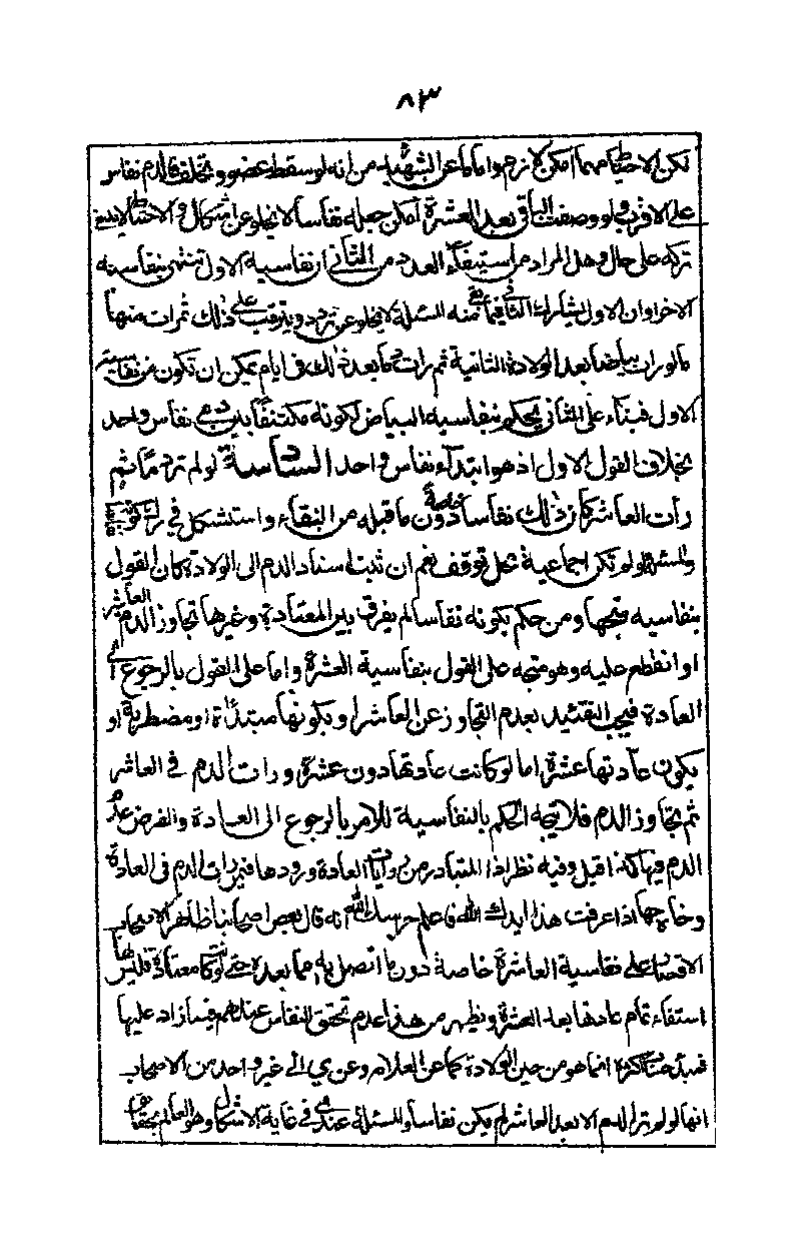 ٨٣
لكن الاحتياط مهما امكن لازم واما ما عن الشهيد من انه لو سقط عضو وتخلف فالدم نفاس
على الاقرب ولو وضعت الباقي بعد العشرة امكن جعله نفاسا لا يخلو عن اشكال والاحتياط لا ينبغي
تركه على حال وهل المراد من استيفاء العدد من الثاني ان نفاسية الاول تنتهي بنفاسية
الاخر او ان الاول يشارك الثاني فيما منه المسئلة لا يخلو عن تردد ويترتب على ذلك ثمرات منها
ما لو رات بياضا بعد الولادة الثانية ثم رات دما بعد ذلك في ايام يمكن ان تكون من نفاسية
الاول فبناء على الثاني يحكم بنفاسية البياض لكونه مكتنفا بدمي نفاس واحد
بخلاف القول الاول اذ هو ابتداء نفاس واحد السادسة لو لم تر دما ثم
رأت العاشر كان ذلك نفاسا خاصة دون ما قبله من النقاء واستشكل في
والمسئلة لو لم تكن اجماعية محل توقف نعم ان ثبت اسناد الدم الى الولادة كان القول
بنفاسيه متجها ومن حكم بكونه نفاسا لم يفرق بين المعتادة وغيرها تجاوز الدم العاشر
او انقطع عليه وهو متجه على القول بنفاسية العشرة واما على القول بالرجوع الى
العادة فيجب التقييد بعدم التجاوز عن العاشر او بكونها مبتدأة او مضطربة او
يكون عادتها عشرة اما لو كانت عادتها دون عشرة ورات الدم في العاشر
ثم تجاوز الدم فلا يتجه الحكم بالنفاسية للامر بالرجوع الى العادة والفرض عدم
الدم فيها كذا قيل وفيه نظر اذ المتبادر من روايات العادة ورودها فيمن رات الدم في العادة
وخارجها اذا عرفت هذا ايدك الله فاعلم حرسك الله انه قال بعض اصحابنا ظاهر الاصحاب
الاقتصار على نفاسية العاشرة خاصة دون ما اتصل به مما بعده حتى لو كانت معتادة فليس لها
استيفاء تمام عادتها بعد العشرة ويظهر من هذا عدم تحقق النفاس عندهم فيما زاد عليها
فمبدء انما هو من حين الولادة كما عن العلامة وعزي الى غير واحد من الاصحاب
انها لو لم تر الدم الا بعد العاشر لم يكن نفاسا والمسئلة عندي في غاية الاشكال وهو العالم